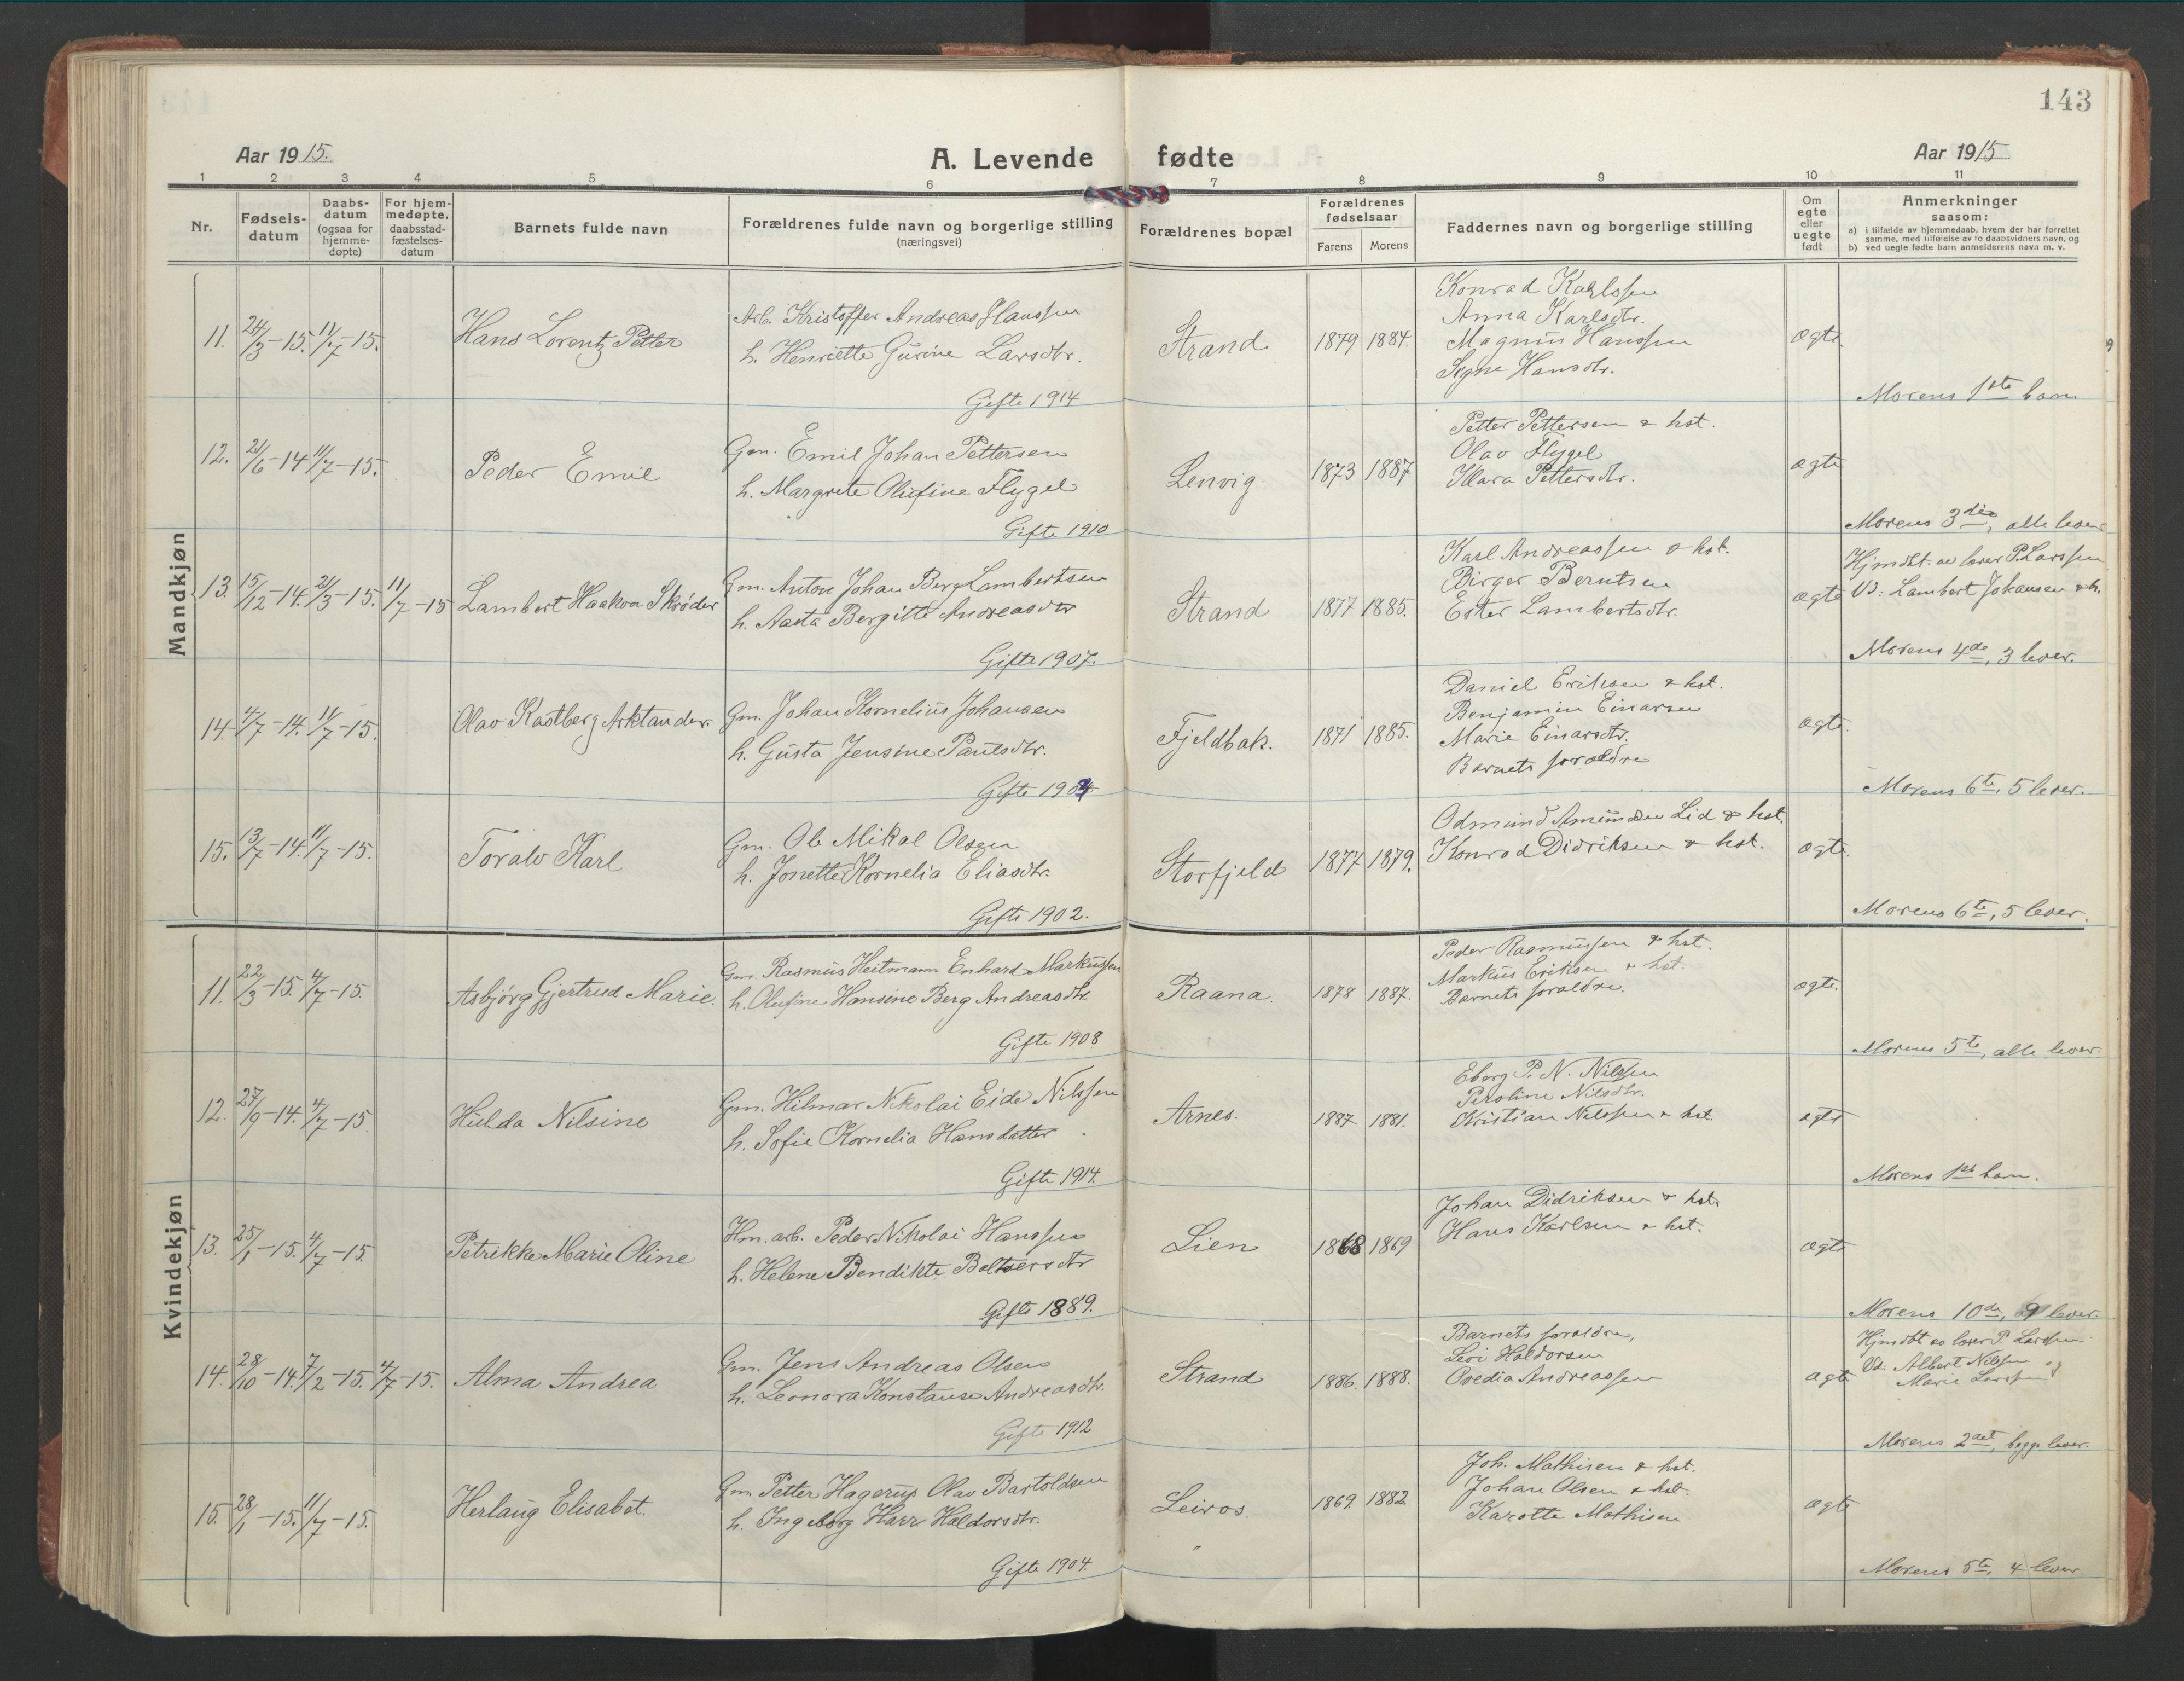 143
Aar 1915.
A. Levende fødte
Aar 1915
1 2 3 4 5 6 7 8 9 10 11
Nr.
Fødsels-
datum
Daabs-
datum
(ogsaa for
hjemme-
døpte)
For hjem-
medøpte,
daabsstad-
fæstelses-
datum
Barnets fulde navn
Forældrenes fulde navn og borgerlige stilling
(næringsvei)
Forældrenes bopæl
Forældrenes
fødselsaar
Farens Morens
Faddernes navn og borgerlige stilling
Om
egte
eller
uegte
født
Anmerkninger
saasom:
a) i tilfælde av hjemmedaab, hvem der har forrettet
samme, med tilføielse av to daabsvidners navn, og
b) ved uegte fødte barn anmelderens navn m. v.
Mandkjøn
11. 24/3-15. 11/7-15. Hans Lorentz Petter
Arb. Kristoffer Andreas Hanssen
h. Henriette Gurine Larsdtr.
Gifte 1914
Strand 1879 1884.
Konrad Karlssen
Anna Karlsdtr.
Magnus Hanssen
Signe Hansdtr.
ægte.
Morens 1ste barn.
12. 21/6-14 11/7-15. Peder Emil
Gm. Emil Johan Pettersen
h. Margrete Olufine Flygel
Gifte 1910
Lenvig 1873 1887
Petter Pettersen & hst.
Olav Flygel
Klara Pettersdtr.
ægte
Morens 3die, alle lever
13. 15/12-14. 21/3-15. 11/7-15 Lambert Haakon Skrøder
Gm. Anton Johan Berg Lambertsen
h. Aasta Bergitte Andreasdtr
Gifte 1907.
Strand 1877 1885.
Karl Andreassen & hst.
Birger Berntsen
Ester Lambertsdtr.
ægte
Hjmdbt. av lærer P. Larssen
Vd: Lambert Johansen & h.
Morens 4de, 3 lever.
14. 4/7-14. 11/7-15. Olav Kastberg Arktander.
Gm. Johan Kornelius Johansen
h. Gusta Jensine Paulsdtr.
Gifte 1904
Fjeldbak. 1871 1885.
Daniel Eriksen & hst.
Benjamin Einarsen
Marie Einarsdtr.
Barnets forældre
ægte.
Morens 6te, 5 lever.
15. 13/7-14. 11/7-15. Toralv Karl
Gm. Ole Mikal Olsen
h. Jonette Kornelia Eliasdtr.
Gifte 1902.
Storfjeld 1877 1879.
Odmund Amundsen Lid & hst.
Konrad Didriksen & hst.
ægte.
Morens 6te, 5 lever.
Kvindekjøn
11. 22/3-15. 4/7-15. Asbjørg Gjertrud Marie.
Gm. Rasmus Heitmann Enhard Markussen
h. Olufine Hansine Berg Andreasdtr.
Gifte 1908
Raana. 1878 1887.
Peder Rasmussen & hst.
Markus Eriksen & hst.
Barnets forældre.
ægte.
Morens 5te, alle lever.
12. 27/9-14. 4/7-15. Hulda Nilsine
Gm. Hilmar Nikolai Eide Nilssen
h. Sofie Kornelia Hansdatter
Gifte 1914.
Arnes. 1887. 1881.
Eberg P. N. Nilssen
Peroline Nilsdtr.
Kristian Nilssen & hst.
ægte
Morens 1ste barn.
13. 25/1-15. 4/7-15 Petrikke Marie Oline
Hm. arb. Peder Nikolai Hanssen
h. Helene Bendikte Baltsersdtr
Gifte 1889.
Lien 1868 1869
Johan Didriksen & hst.
Hans Karlsen & hst.
ægte
Morens 10de, 9 lever.
14. 28/10-14. 7/2-15. 4/7-15. Alma Andrea
Gm. Jens Andreas Olsen
h. Leonora Konstanse Andreasdtr.
Gifte 1912
Strand 1886. 1888.
Barnets forældre,
Levi Haldorsen
Ovedia Andreassen
ægte
Hjmdbt av lærer P. Larssen
Vd: Albert Nilssen og
Marie Larssen
Morens 2det, begge lever.
15. 28/1-15. 11/7-15. Herlaug Elisabet.
Gm. Petter Hagerup Olav Bartoldsen
h. Ingeborg Harr. Haldorsdtr.
Gifte 1904.
Leiros. 1869. 1882.
Joh. Mathisen & hst.
Johan Olsen & hst.
Karotte Mathisen
ægte
Morens 5te, 4 lever.